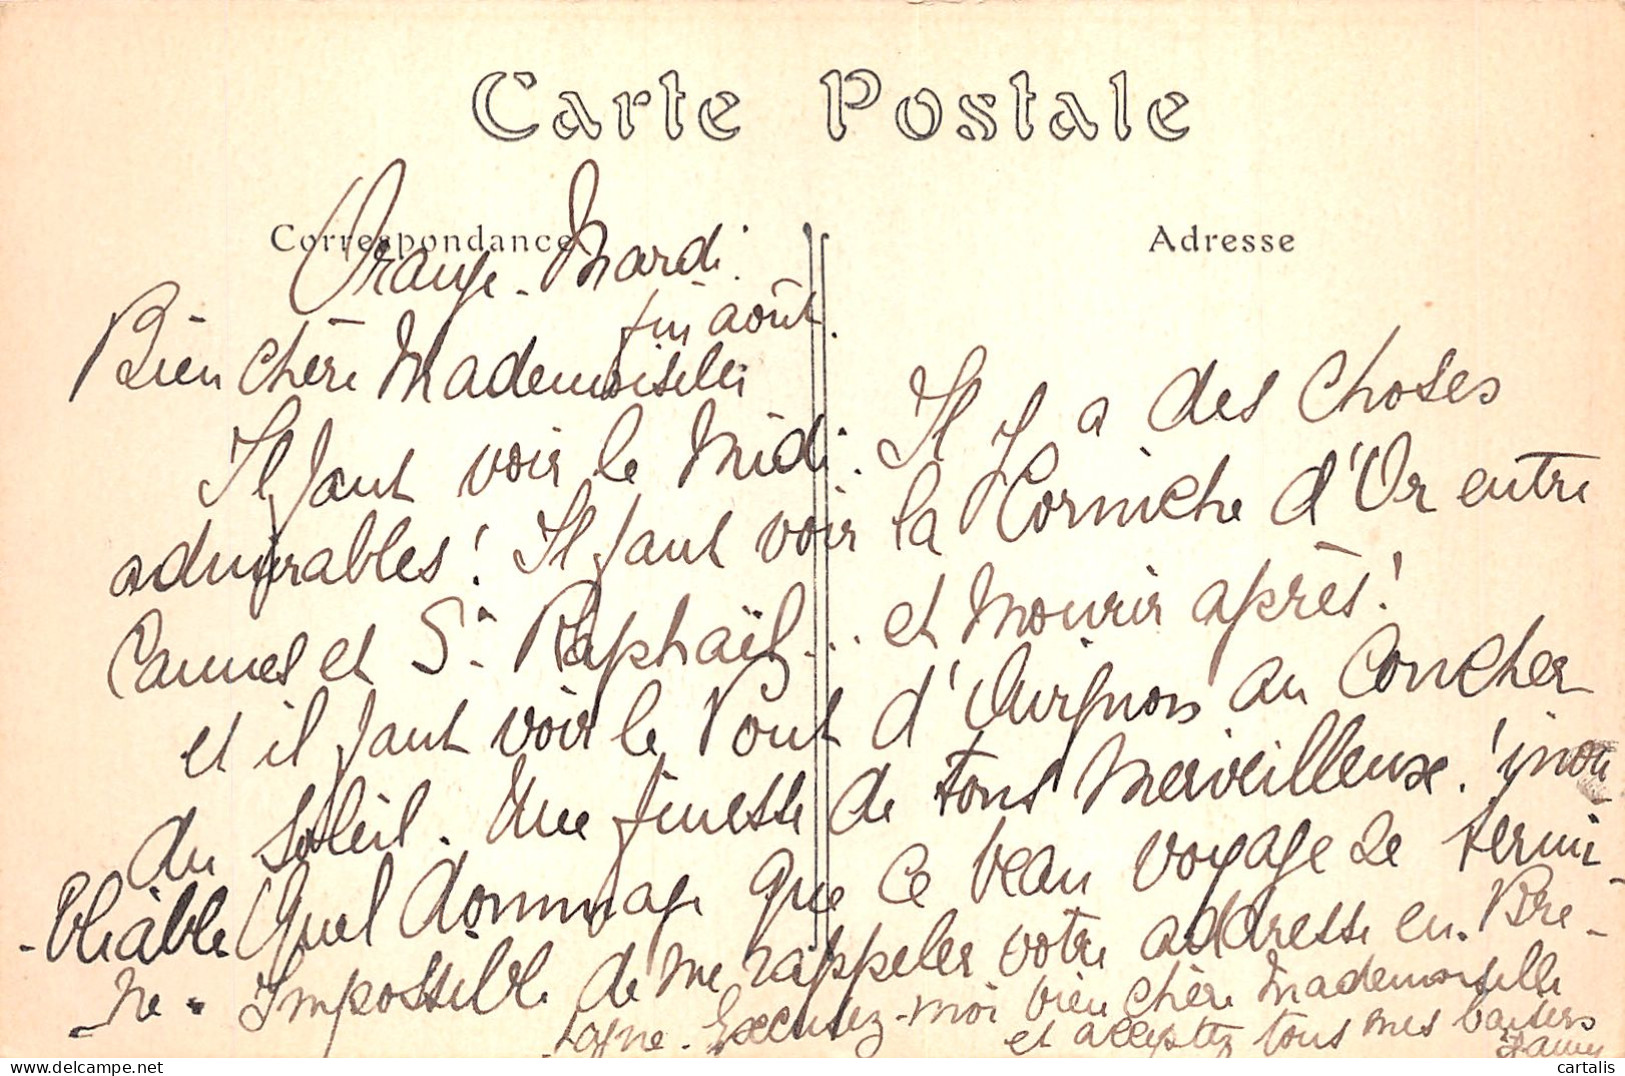 Carte Postale
Correspondance
Adresse
Orange. Mardi.
fin août.
Bien chère Mademoiselle
Il faut voir le Midi. Il y a des choses
admirables ! Il faut voir la Corniche d'Or entre
Cannes et St. Raphaël... et mourir après !
et il faut voir le Pont d'Avignon au coucher
du soleil. Une finesse de tons merveilleuse ! inou
-bliable Quel dommage que ce beau voyage se termi-
-ne. Impossible de me rappeler votre adresse en Bre-
tagne. Excusez-moi bien chère Mademoiselle
et acceptez tous mes baisers
cartalis
www.delcampe.net